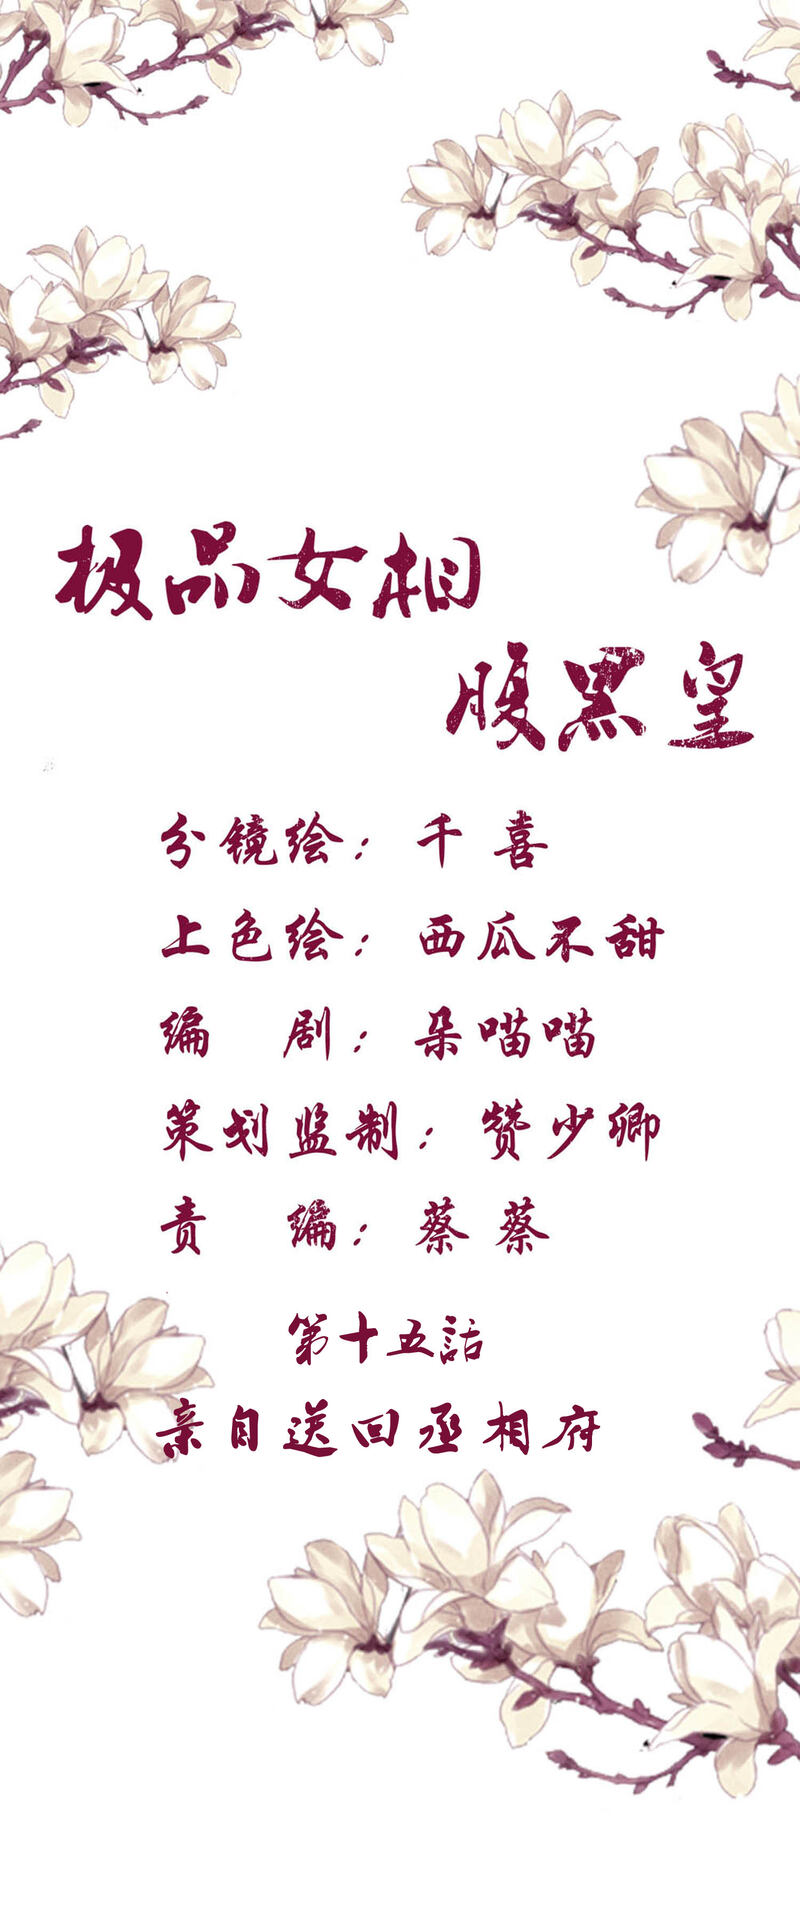 极品女相
腹黑皇
分镜绘：千喜
上色绘：西瓜不甜
编剧：朵喵喵
策划监制：赞少卿
责编：蔡蔡
第十五話
亲自送回丞相府